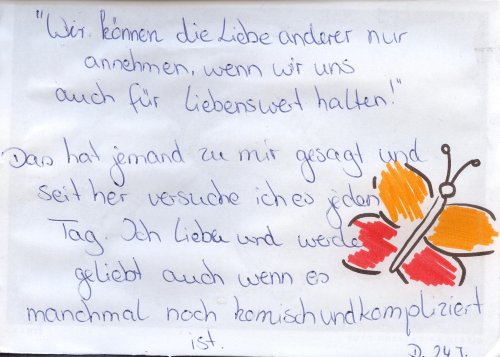 "Wir können die Liebe anderer nur
annehmen, wenn wir uns
auch für liebenswert halten!"
Das hat jemand zu mir gesagt und
seit her versuche ich es jeden
Tag. Ich liebe und werde
geliebt auch wenn es
manchmal noch komisch und kompliziert
ist.
D. 24 J.